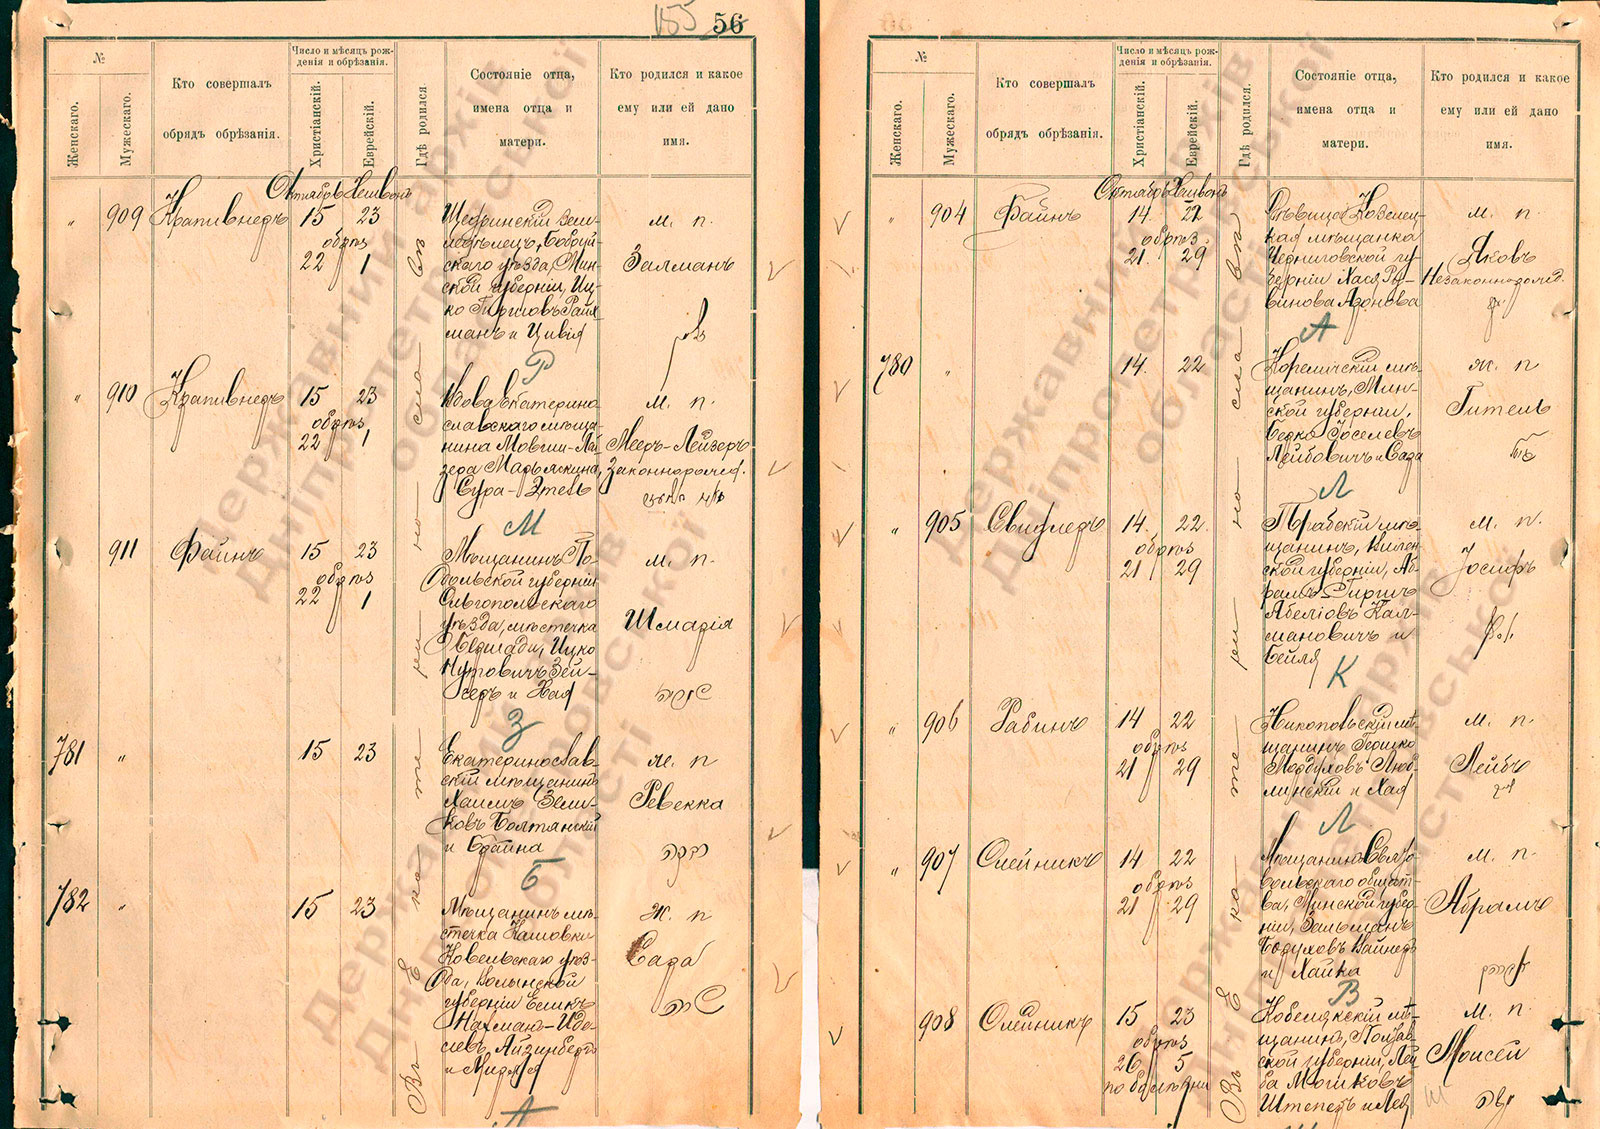 155 56
№
Женскаго.
Мужескаго.
Кто совершалъ
обрядъ обрѣзанія.
Число и мѣсяцъ рож-
денія и обрѣзанія.
Христіанскій.
Еврейскій.
Гдѣ родился
Состояніе отца,
имена отца и
матери.
Кто родился и какое
ему или ей дано
имя.
Октябрь Хешвонъ
" 909 Крапивнеръ 15 23
обрѣз
22 1
Щедринскій зем-
ледѣлецъ, Бобруй-
скаго уѣзда, Мин-
ской губерніи, Иц-
ко Гиршовъ Райх
манъ и Цивія
м. п.
Залманъ
Р
" 910 Крапивнеръ 15 23
обрѣз
22 1
Вдова Екатерино
славскаго мѣща
нина Мовши-Лей
зера Марьяхина,
Сура-Этель
м. п.
Мееръ-Лейзеръ
Законнорожд.
М
911 Файнъ 15 23
обрѣз
22 1
Мѣщанинъ По-
дольской губерніи
Ольгопольскаго
уѣзда, мѣстечка
Бершади, Ицко
Нутовичъ Зей-
серъ и Хая
м. п.
Шмарія
שמריה
З
781 " 15 23
Екатеринослав-
скій мѣщанинъ
Хаимъ Зели-
ковъ Полтянскій
и Брайна
ж. п
Ревекка
רבקה
Б
782 " 15 23
Мѣщанинъ мѣ-
стечка Кашовки
Ковельскаго уѣз-
да, Волынской
губерніи Еликъ
Нахман-Идо-
левъ Айзинбергъ
ж. п
Сара
שרה
А
Въ Екатеринославѣ
№
Женскаго.
Мужескаго.
Кто совершалъ
обрядъ обрѣзанія.
Число и мѣсяцъ рож-
денія и обрѣзанія.
Христіанскій.
Еврейскій.
Гдѣ родился.
Состояніе отца,
имена отца и
матери.
Кто родился и какое
ему или ей дано
имя.
Октябрь Хешвонъ
" 904 Файнъ 14. 22
обрѣз.
21. 29
Дѣвица Козелец-
кая мѣщанка
Черниговской гу-
берніи Хася Ру-
винова Аронова
м. п.
Яковъ
Незаконнорожд.
А
780 " 14. 22
Кореличскій мѣ-
щанинъ, Мин-
ской губерніи,
Берко Іоселевъ
Лейбовичъ и Сара
ж. п
Гитель
Л
" 905 Свидлеръ 14. 22.
обрѣз
21 29
щанинъ, Вилен-
ской губерніи, Аб-
рамъ-Гиршъ
Абеліовъ Кал-
мановичъ и
Бейля
м. п.
Іосифъ
К
" 906 Рабинъ 14 22
обрѣз
21 29
Никопольскій мѣ-
щанинъ Гершко
Мордуховъ Люб-
линскій и Хая
м. п.
Лейбъ
Л
" 907 Олейникъ 14 22
обрѣз
21 29
Мѣщанинъ Свято-
вольскаго общест-
ва, Минской губер-
ніи, Зальманъ
Боруховъ Вайнеръ
и Хайка
м. п.
Абрамъ
В
908 Олейникъ 15 23
обрѣз
26 5
по болѣзни
Кобелякскій мѣ-
щанинъ, Полтав-
ской губерніи, Лей
ба Мошковъ
Штепетъ и Лея
м. п.
Моисей
משה
Ш
Въ Екатеринославѣ
Державний архів
Дніпропетровської
області